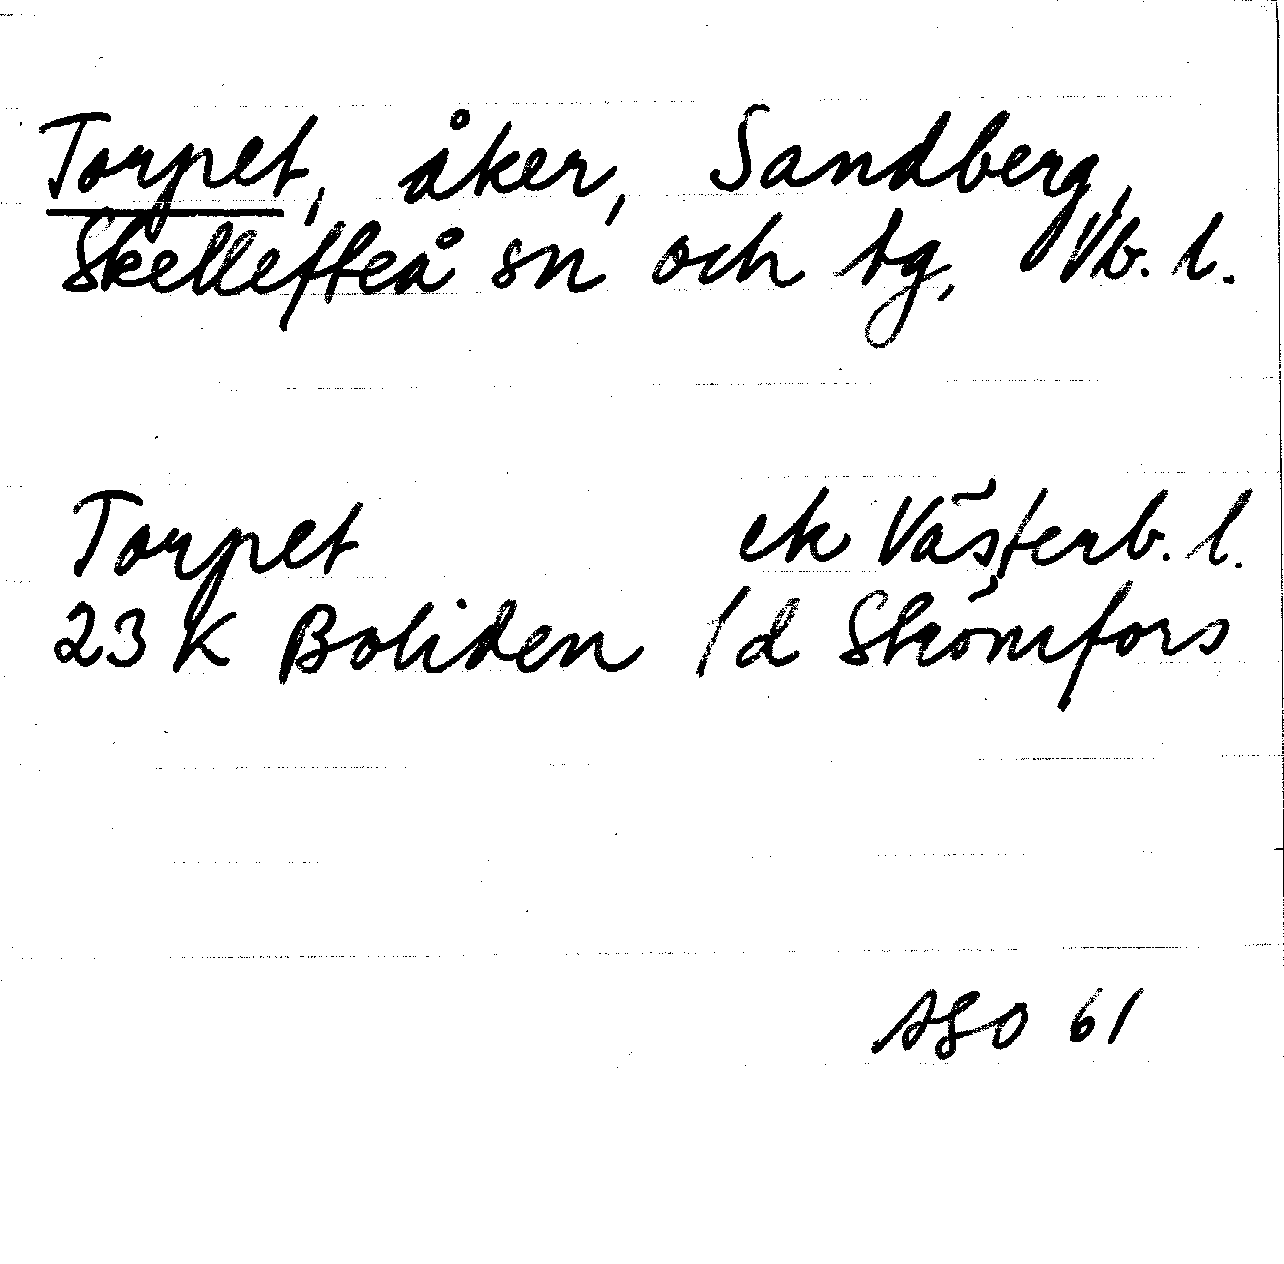 Torpet, åker, Sandberg,
Skellefteå sn och tg, Vb. l.
Torpet ek Västerb. l.
23 K Boliden 1d Strömfors
ASO 61